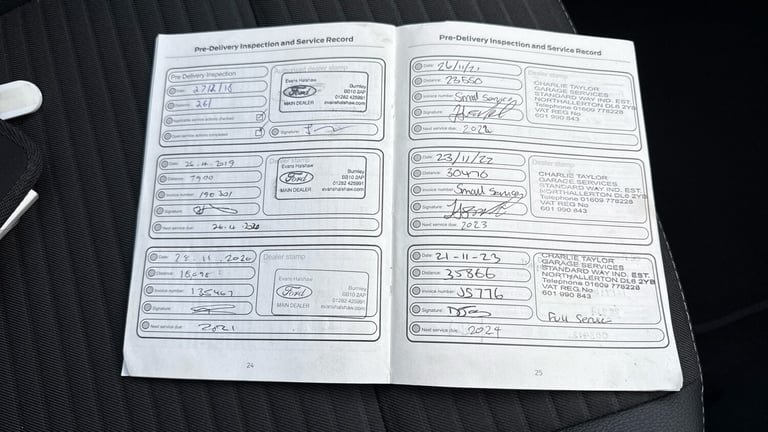 Pre-Delivery Inspection and Service Record
Pre Delivery Inspection
Authorised dealer stamp
Date:
Distance: 261
Applicable service actions checked
Open service actions completed
Signature:
Evans Halshaw
Ford
MAIN DEALER
Burnley
BB10 2AP
01282 425991
evanshalshaw.com
Date: 25.4.2019
Distance: 7900
Invoice number: 190301
Signature:
Next service due: 26.4.2020
Dealer stamp
Evans Halshaw
Ford
MAIN DEALER
Burnley
BB10 2AP
01282 425991
evanshalshaw.com
Date: 28.11.2020
Distance:
Invoice number: 135467
Signature:
Next service due: 2021
Dealer stamp
Evans Halshaw
Ford
MAIN DEALER
Burnley
BB10 2AP
01282 425991
evanshalshaw.com
24
Pre-Delivery Inspection and Service Record
Date: 26/11/21
Distance: 23550
Invoice number: Small Service
Signature:
Next service due: 2022
Dealer stamp
CHARLIE TAYLOR
GARAGE SERVICES
STANDARD WAY IND. EST.
NORTHALLERTON DL6 2YB
Telephone 01609 778228
VAT REG No
601 990 843
Date: 23/11/22
Distance: 30476
Invoice number: Small Service
Signature:
Next service due: 2023
Dealer stamp
CHARLIE TAYLOR
GARAGE SERVICES
STANDARD WAY IND. EST.
NORTHALLERTON DL6 2YB
Telephone 01609 778228
VAT REG No
601 990 843
Date: 21-11-23
Distance: 35866
Invoice number: JS776
Signature:
Next service due: 2024
CHARLIE TAYLOR
GARAGE SERVICES
STANDARD WAY IND. EST.
NORTHALLERTON DL6 2YB
Telephone 01609 778228
VAT REG No
601 990 843
Full Service
25